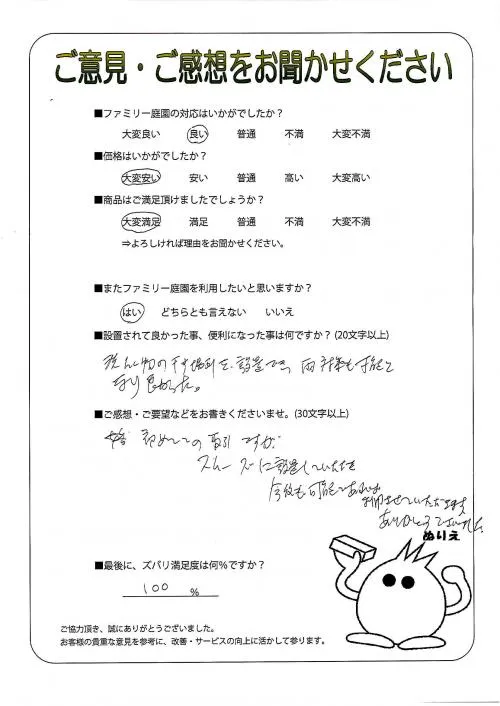 ご意見・ご感想をお聞かせください
■ファミリー庭園の対応はいかがでしたか？
大変良い 良い 普通 不満 大変不満
■価格はいかがでしたか？
大変安い 安い 普通 高い 大変高い
■商品はご満足頂けましたでしょうか？
大変満足 満足 普通 不満 大変不満
⇒よろしければ理由をお聞かせください。
■またファミリー庭園を利用したいと思いますか？
はい どちらとも言えない いいえ
■設置されて良かった事、便利になった事は何ですか？(20文字以上)
洗たく物の干す場所を、設置でき、雨対策も可能と
なり良かった。
■ご感想・ご要望などをお書きくださいませ。(30文字以上)
初めての取引ですが
スムーズに設置していただき
今後も可能であれば
利用させていただきます
ありがとうございました。
ぬりえ
■最後に、ズバリ満足度は何%ですか？
100 %
ご協力頂き、誠にありがとうございました。
お客様の貴重な意見を参考に、改善・サービスの向上に活かして参ります。